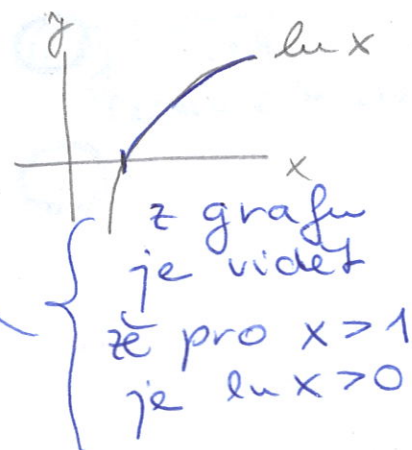 y
ln x
x
z grafu
je vidět
že pro x > 1
je ln x > 0